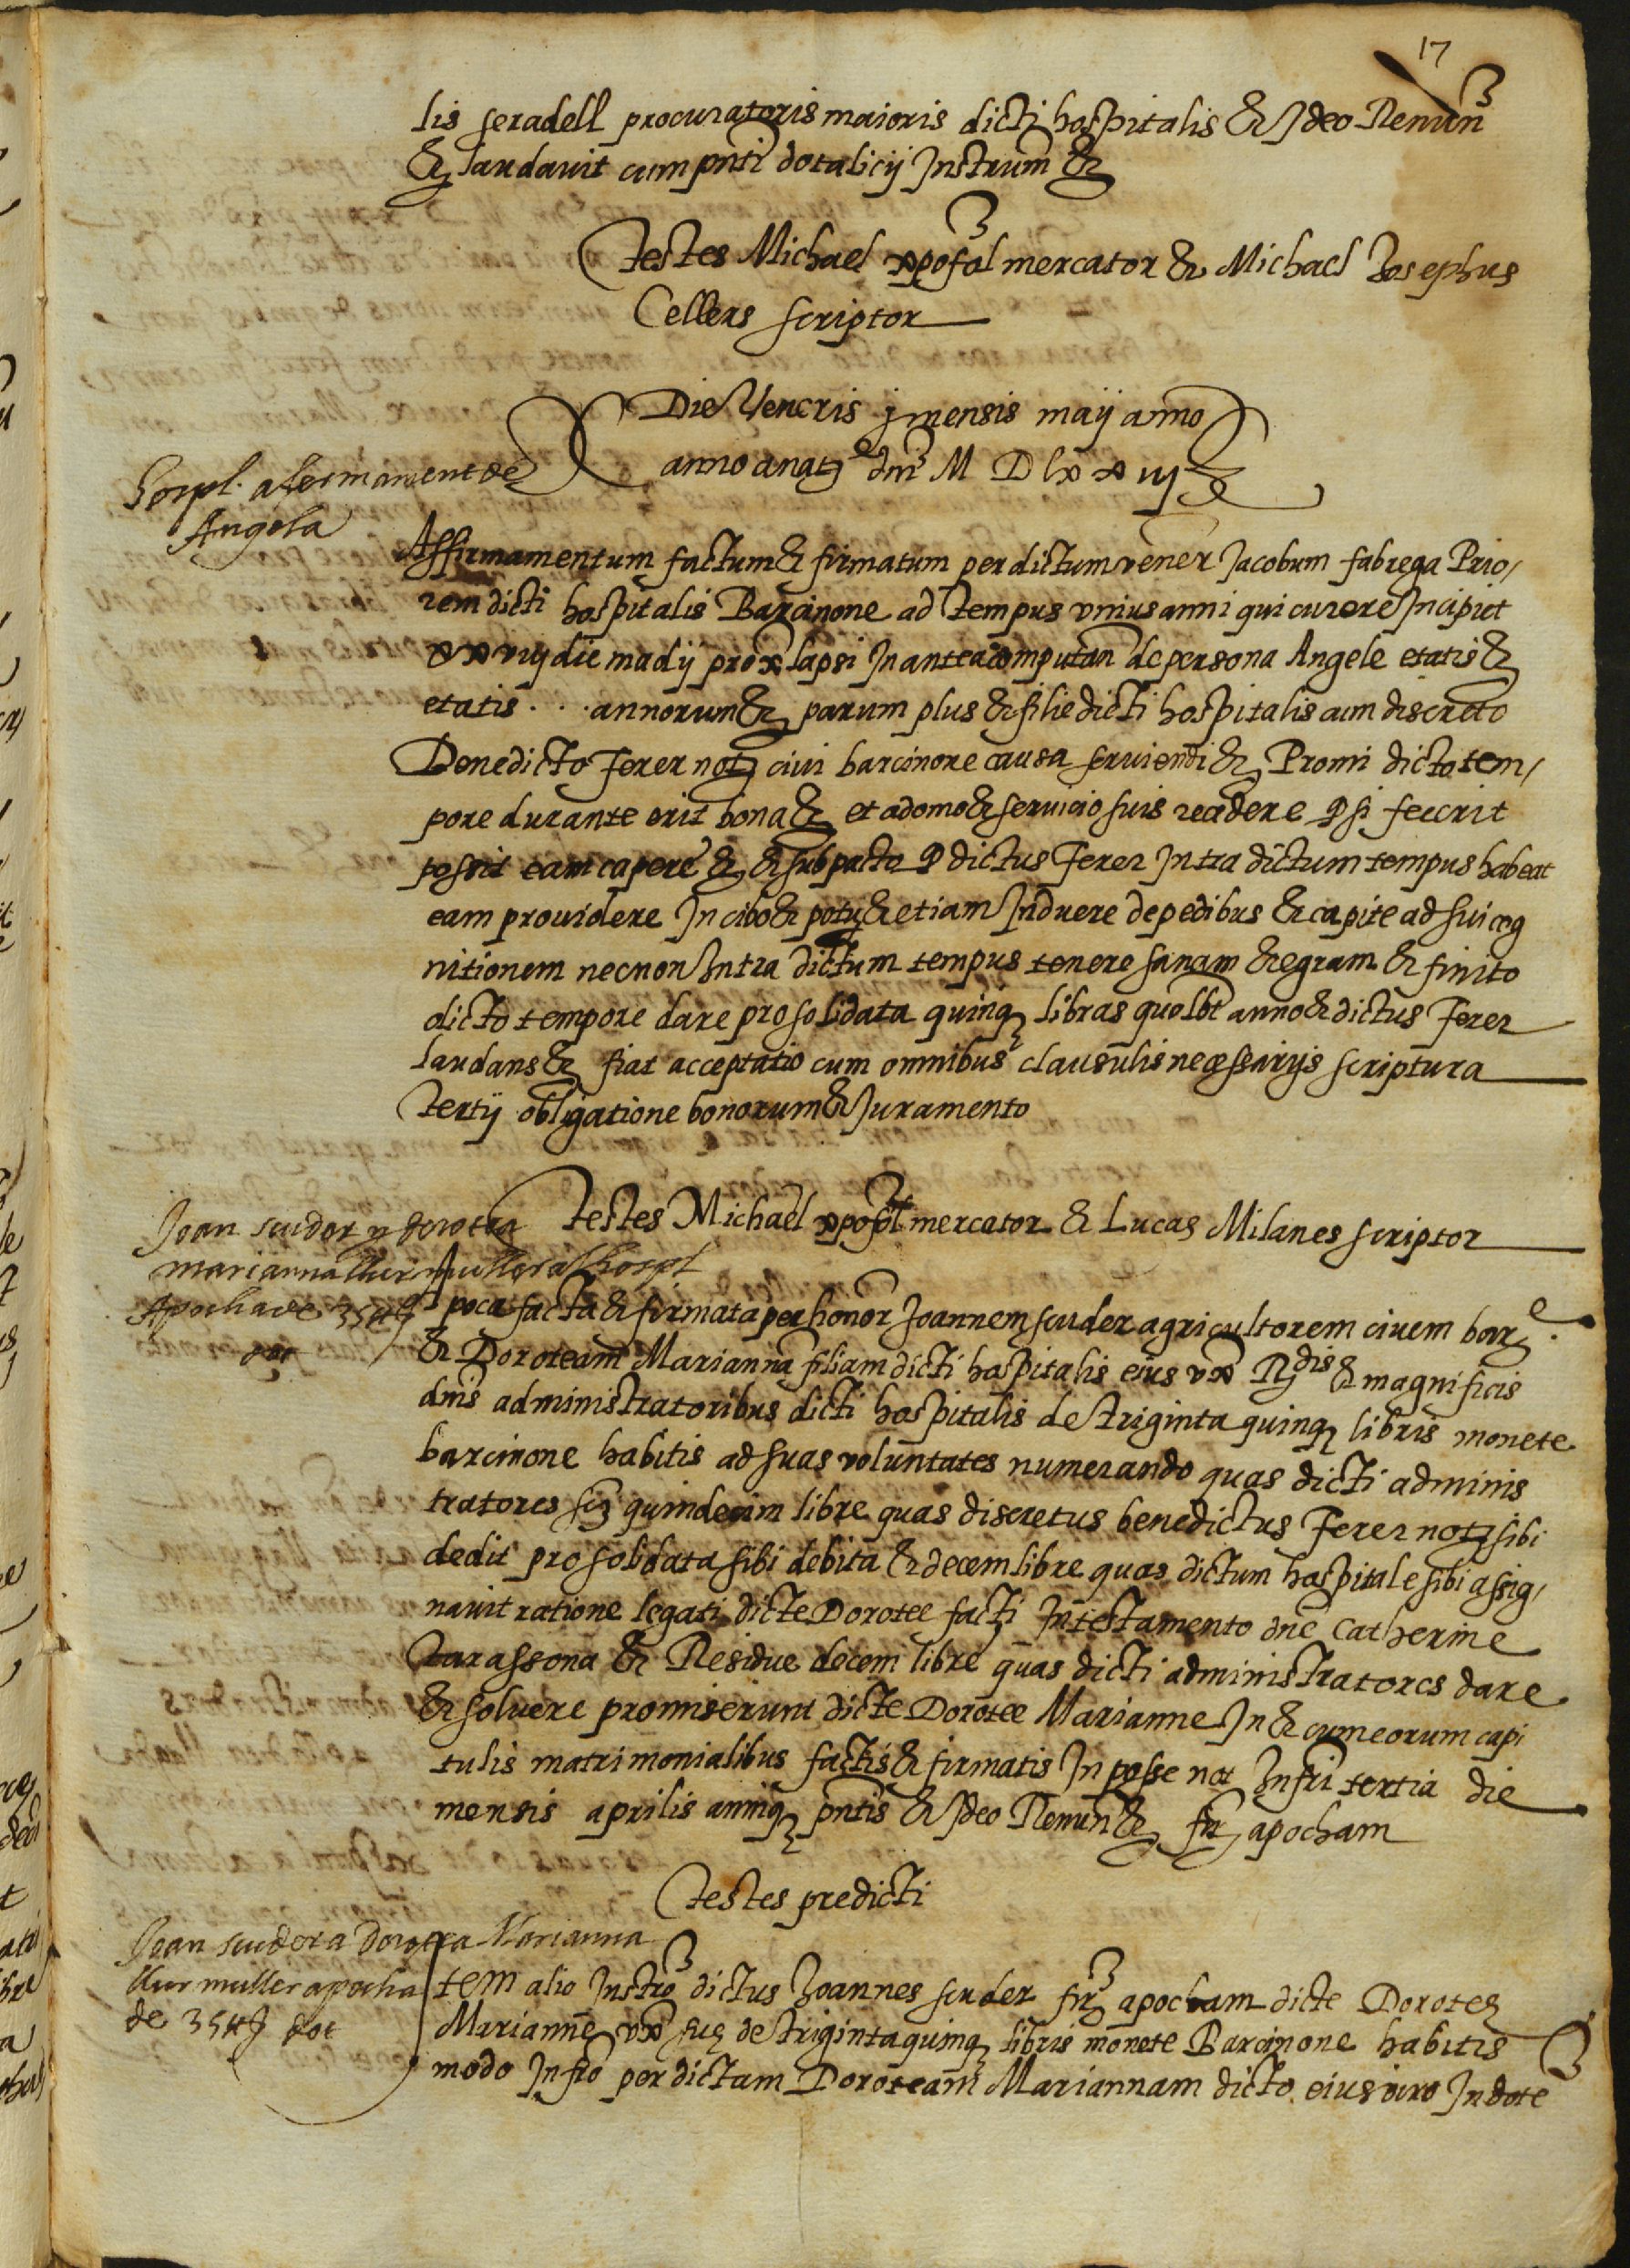 17
lis seradell procuratoris maioris dicti hospitalis & Ideo Renun
& laudavit cum pnti dotalicij Instrum &
Testes Michael xpofol mercator & Michael Josephus
Cellers scriptor
Die Veneris j mensis maij anno
anno a natz dni M D lxx iij
hospl. afermament de
Angela
Affirmamentum factum & firmatum per dictum vener Jacobum fabrega Prio/
rem dicti hospitalis Barcinone ad tempus vnius anni qui currere Incipiet
die madij prox lapsi In antea computan de persona Angele etatis &
etatis . . . annorum & parum plus & filie dicti hospitalis cum discreto
Benedicto Ferer notz civi barcinone causa serviendi & Promi dicto tem/
pore durante erit bona & et a domo & servicio suis recedere q si fecerit
possit eam capere & & sub pacto q dictus Ferer Intra dictum tempus habeat
eam providere In cibo & potu & etiam Induere de pedibus & capite ad sui cog
nitionem necnon Intra dictum tempus tenere sanam & egram & finito
dicto tempore dare pro solidata quinq libras quolbt anno & dictus Ferer
laudans & fiat acceptatio cum omnibus clausulis necessarijs scriptura
tertij obligatione bonorum & Juramento
Testes Michael xpofol mercator & Lucas Milanes scriptor
Joan scuder y dorotea
marianna llur muller al hospl
Apocha de 35 ℔
dot
Apoca facta & firmata per honor Joannem scuder agricultorem civem bar
& Doroteam Marianna filiam dicti hospitalis eius vx Rdis & magnificis
dnis administratoribus dicti hospitalis de triginta quinq libris monete
barcinone habitis ad suas voluntates numerando quas dicti adminis
tratores scz quindecim libre quas discretus benedictus Ferer notz sibi
dedit pro solidata sibi debita & decem libre quas dictum hospitale sibi assig/
navit ratione legati dicte Dorotee facti In testamento dne Catherine
tarassona & Residue decem libre quas dicti administratores dare
& solvere promiserunt dicte Dorotee Marianne In & cum eorum capi
tulis matrimonialibus factis & firmatis In posse not Infri tertia die
mensis aprilis anniq pntis & Ideo Renun & fir apocham
Testes predicti
Joan scuder a Dorotea Marianna
llur muller apocha
de 35 ℔ dot
Item alio Instro dictus Joannes scuder fir apocham dicte Dorotee
Marianne vx sue de triginta quinq libris monete Barcinone habitis
modo Infro per dictam Doroteam Mariannam dicto eius viro In dote